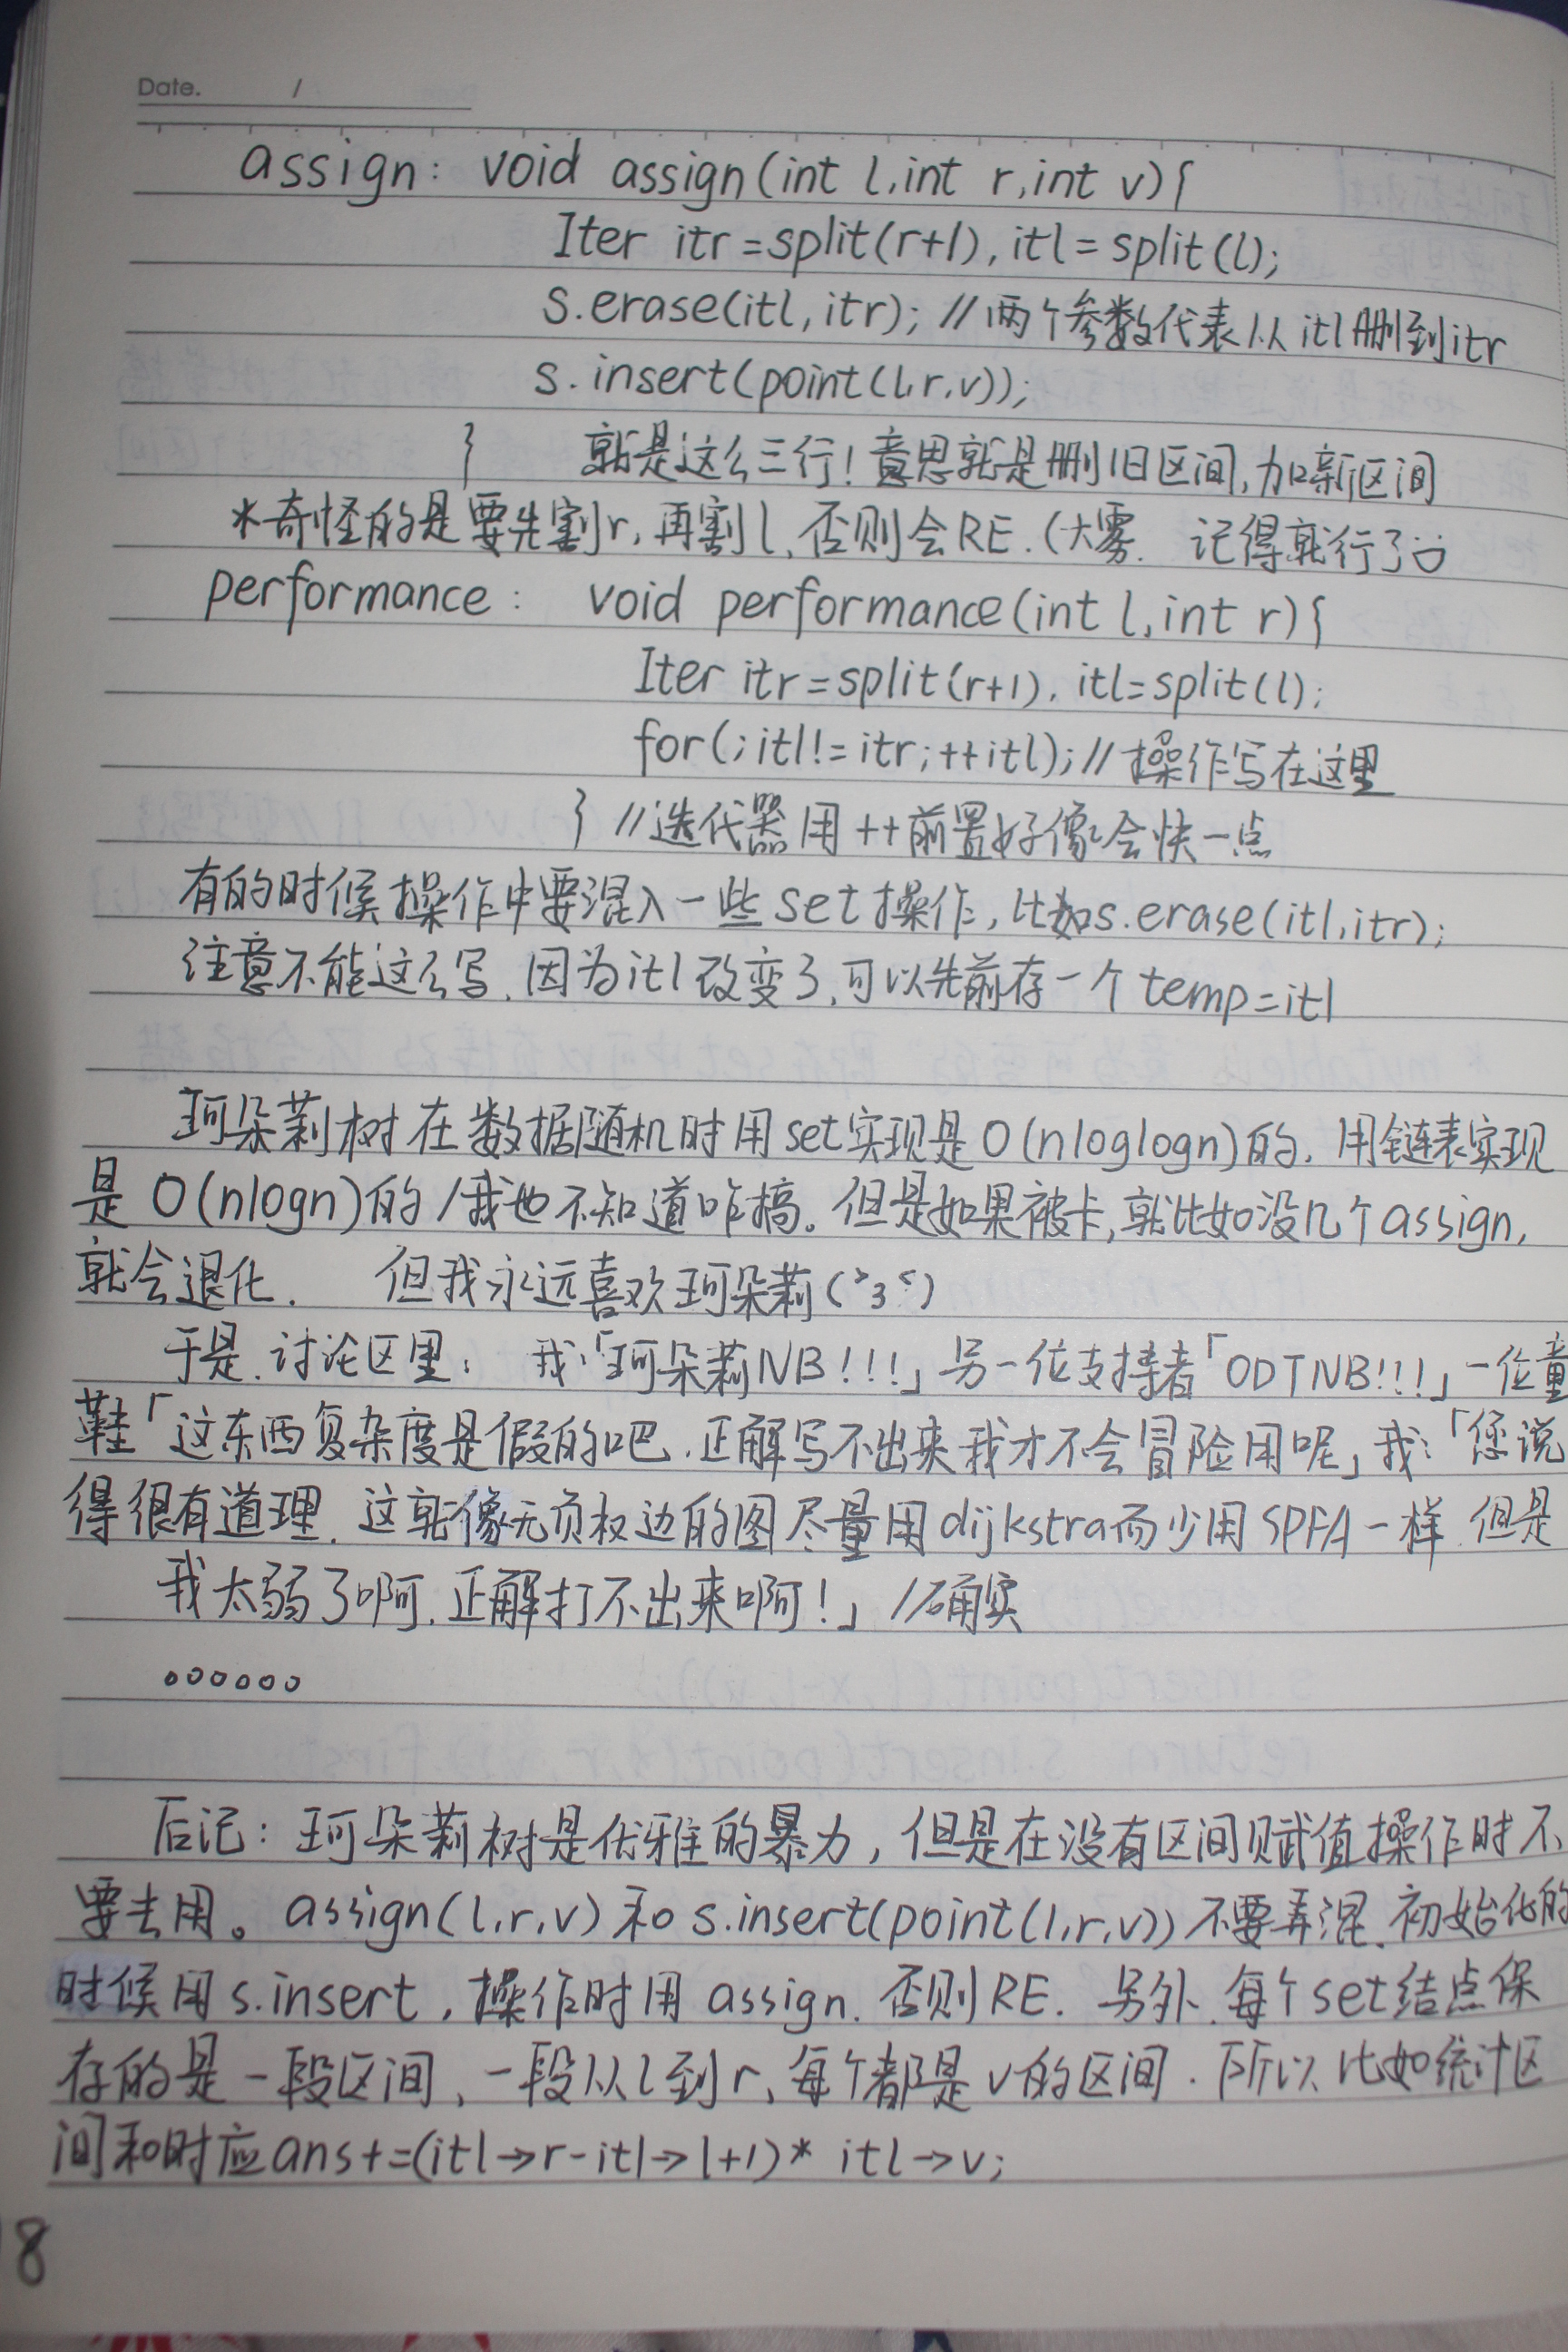 Date. /
assign: void assign(int l,int r,int v){
Iter itr=split(r+1),itl=split(l);
s.erase(itl,itr); //两个参数代表从itl删到itr
s.insert(point(l,r,v));
} 就是这么三行!意思就是删旧区间,加新区间
*奇怪的是要先割r,再割l,否则会RE.(大雾. 记得就行了
performance: void performance(int l,int r){
Iter itr=split(r+1),itl=split(l);
for(;itl!=itr;++itl);//操作写在这里
} //迭代器用++前置好像会快一点
有的时候操作中要混入一些set操作,比如s.erase(itl,itr);
注意不能这么写,因为itl改变了,可以先前存一个temp=itl
珂朵莉树在数据随机时用set实现是O(nloglogn)的,用链表实现
是O(nlogn)的/我也不知道咋搞。但是如果被卡,就比如没几个assign,
就会退化. 但我永远喜欢珂朵莉(>3<)
于是,讨论区里: 我:「珂朵莉NB!!!」另一位支持者「ODTNB!!!」一位童
鞋「这东西复杂度是假的吧,正解写不出来我才不会冒险用呢」我:「您说
得很有道理.这就像无负权边的图尽量用dijkstra而少用SPFA一样.但是
我太弱了啊,正解打不出来啊!」//确实
。。。。。。
后记:珂朵莉树是优雅的暴力,但是在没有区间赋值操作时不
要去用。assign(l,r,v)和s.insert(point(l,r,v))不要弄混,初始化的
时候用s.insert,操作时用assign.否则RE. 另外,每个set结点保
存的是一段区间、一段从l到r,每个都是v的区间.所以比如统计区
间和时应ans+=(itl→r-itl→l+1)* itl→v;
8